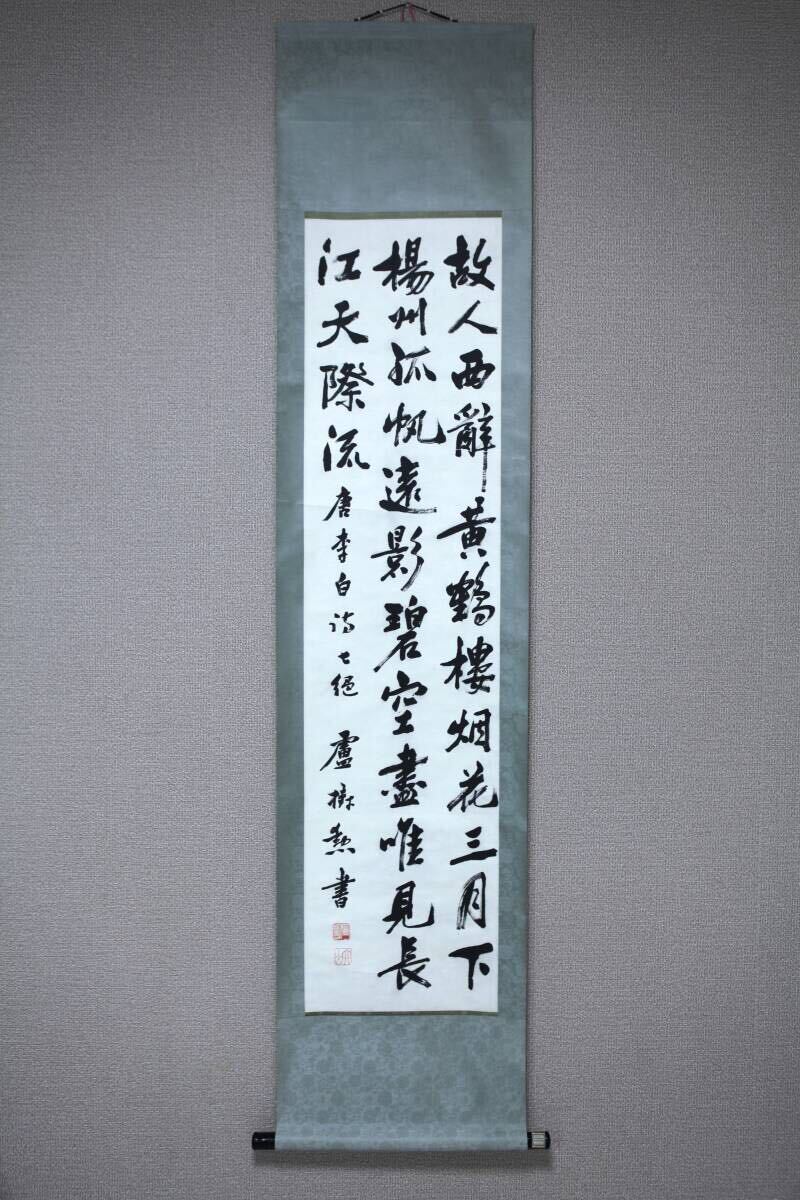 故人西辭黄鶴樓烟花三月下
楊州孤帆遠影碧空盡唯見長
江天際流唐李白詩七絕 盧樹勲書